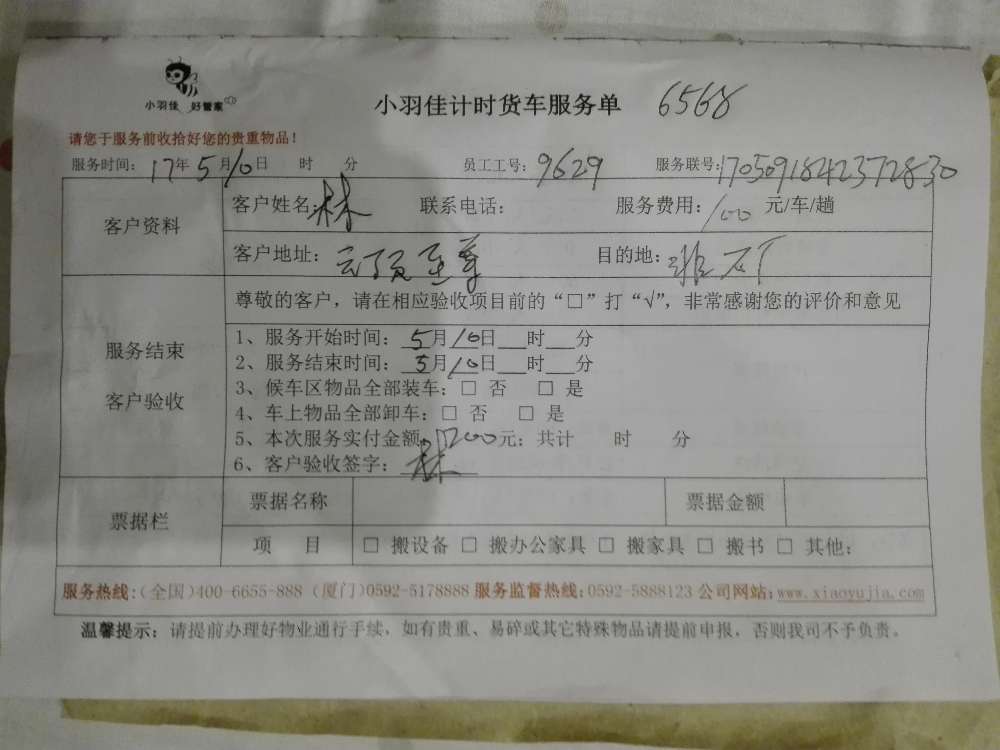 小羽佳 好管家
小羽佳计时货车服务单 6568
请您于服务前收拾好您的贵重物品！
服务时间：17年5月10日 时 分 员工工号：9629 服务联号：1705091842372830
客户资料
客户姓名：林 联系电话： 服务费用：100 元/车/趟
客户地址：云顶至尊 目的地：
服务结束
客户验收
尊敬的客户，请在相应验收项目前的“□”打“√”，非常感谢您的评价和意见
1、服务开始时间：5月10日__时__分
2、服务结束时间：5月10日__时__分
3、候车区物品全部装车：□ 否 □ 是
4、车上物品全部卸车：□ 否 □ 是
5、本次服务实付金额：元；共计 时 分
6、客户验收签字：林
票据栏
票据名称 票据金额
项 目 □ 搬设备 □ 搬办公家具 □ 搬家具 □ 搬书 □ 其他：
服务热线：（全国）400-6655-888（厦门）0592-5178888 服务监督热线：0592-5888123 公司网站：www.xiaoyujia.com
温馨提示：请提前办理好物业通行手续，如有贵重、易碎或其它特殊物品请提前申报，否则我司不予负责。